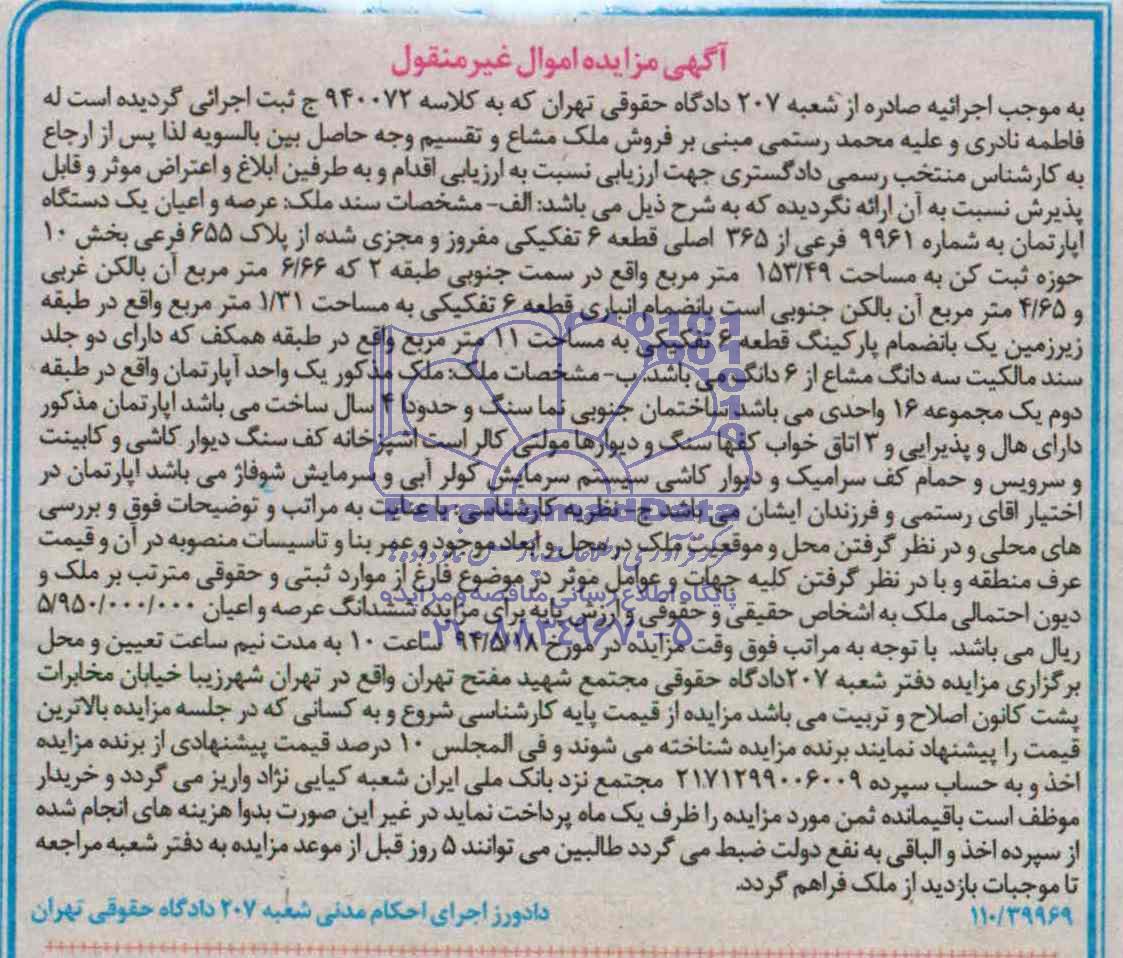 آگهی مزایده اموال غیر منقول
به موجب اجرائیه صادره از شعبه ۲۰۷ دادگاه حقوقی تهران که به کلاسه ۹۴۰۰۷۲ ج ثبت اجرائی گردیده است له
فاطمه نادری و علیه محمد رستمی مبنی بر فروش ملک مشاع و تقسیم وجه حاصل بین بالسویه لذا پس از ارجاع
به کارشناس منتخب رسمی دادگستری جهت ارزیابی نسبت به ارزیابی اقدام و به طرفین ابلاغ و اعتراض موثر و قابل
پذیرش نسبت به آن ارائه نگردیده که به شرح ذیل می باشد: الف- مشخصات سند ملک: عرصه و اعیان یک دستگاه
اپارتمان به شماره ۹۹۶۱ فرعی از ۳۶۵ اصلی قطعه ۶ تفکیکی مفروز و مجزی شده از پلاک ۶۵۵ فرعی بخش ۱۰
حوزه ثبت کن به مساحت ۱۵۳/۴۹ متر مربع واقع در سمت جنوبی طبقه ۲ که ۶/۶۶ متر مربع آن بالکن غربی
و ۴/۶۵ متر مربع آن بالکن جنوبی است بانضمام انباری قطعه ۶ تفکیکی به مساحت ۱/۳۱ متر مربع واقع در طبقه
زیرزمین یک بانضمام پارکینگ قطعه ۶ تفکیکی به مساحت ۱۱ متر مربع واقع در طبقه همکف که دارای دو جلد
سند مالکیت سه دانگ مشاع از ۶ دانگ می باشد. ب- مشخصات ملک: ملک مذکور یک واحد آپارتمان واقع در طبقه
دوم یک مجموعه ۱۶ واحدی می باشد ساختمان جنوبی نما سنگ و حدودا ۴ سال ساخت می باشد اپارتمان مذکور
دارای هال و پذیرایی و ۳ اتاق خواب کفها سنگ و دیوارها مولتی کالر است اشپزخانه کف سنگ دیوار کاشی و کابینت
و سرویس و حمام کف سرامیک و دیوار کاشی سیستم سرمایش کولر آبی و سرمایش شوفاژ می باشد اپارتمان در
اختیار اقای رستمی و فرزندان ایشان می باشد ج- نظریه کارشناسی: با عنایت به مراتب و توضیحات فوق و بررسی
های محلی و در نظر گرفتن محل و موقعیت ملک در محل و ابعاد موجود و عمر بنا و تاسیسات منصوبه در آن و قیمت
عرف منطقه و با در نظر گرفتن کلیه جهات و عوامل موثر در موضوع فارغ از موارد ثبتی و حقوقی مترتب بر ملک و
دیون احتمالی ملک به اشخاص حقیقی و حقوقی و ارزش پایه برای مزایده ششدانگ عرصه و اعیان ۵/۹۵۰/۰۰۰/۰۰۰
ریال می باشد. با توجه به مراتب فوق وقت مزایده در مورخ ۹۴/۵/۱۸ ساعت ۱۰ به مدت نیم ساعت تعیین و محل
برگزاری مزایده دفتر شعبه ۲۰۷دادگاه حقوقی مجتمع شهید مفتح تهران واقع در تهران شهرزیبا خیابان مخابرات
پشت کانون اصلاح و تربیت می باشد مزایده از قیمت پایه کارشناسی شروع و به کسانی که در جلسه مزایده بالاترین
قیمت را پیشنهاد نمایند برنده مزایده شناخته می شوند و فی المجلس ۱۰ درصد قیمت پیشنهادی از برنده مزایده
اخذ و به حساب سپرده ۲۱۷۱۲۹۹۰۰۶۰۰۹ مجتمع نزد بانک ملی ایران شعبه کیایی نژاد واریز می گردد و خریدار
موظف است باقیمانده ثمن مورد مزایده را ظرف یک ماه پرداخت نماید در غیر این صورت بدوا هزینه های انجام شده
از سپرده اخذ و الباقی به نفع دولت ضبط می گردد طالبین می توانند ۵ روز قبل از موعد مزایده به دفتر شعبه مراجعه
تا موجبات بازدید از ملک فراهم گردد.
۱۱۰/۳۹۹۶۹ دادورز اجرای احکام مدنی شعبه ۲۰۷ دادگاه حقوقی تهران
ParsNamadData
پایگاه اطلاع رسانی مناقصه و مزایده
۰۲۱-۸۸۳۴۹۶۷۰-۵